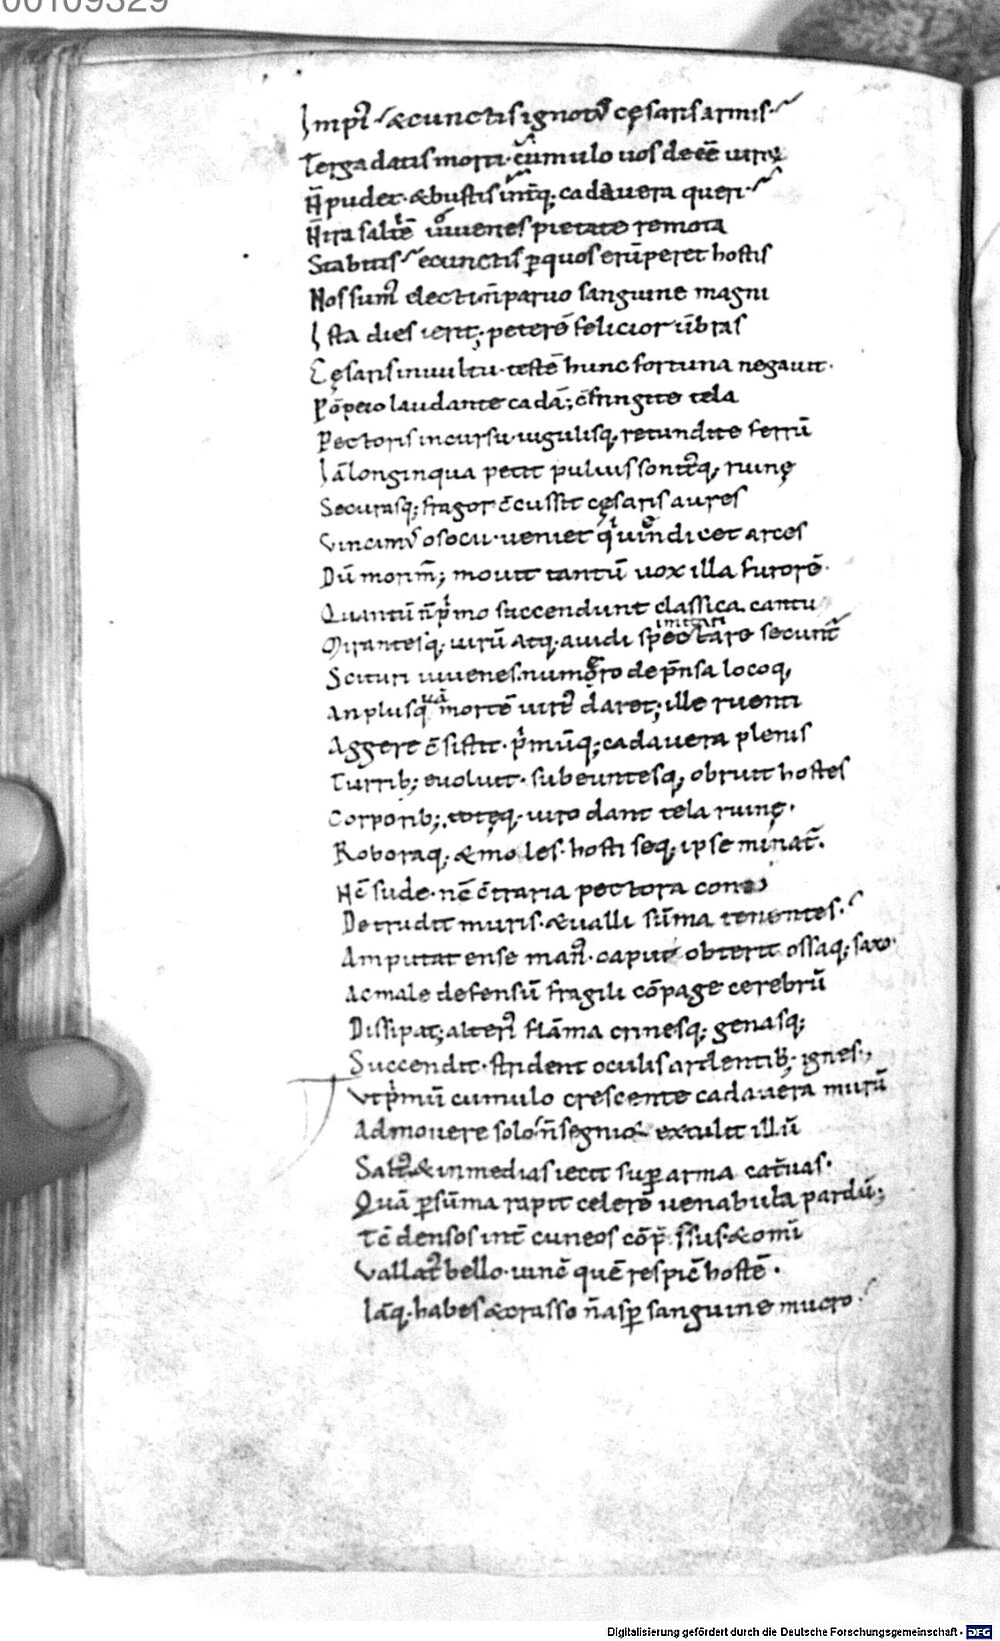 00109329
Impi⁹ &cunctis ignot⁹ cęsaris armis
Terga datis morti cumulo uos deēē uirų
N̄ pudet &bustis int̄q; cadauera queri
N̄ ira saltē iuuenes pietate remota
Stabitis ecunctis ꝑquos erūperet hostis
Nos sum⁹ electi n̄ paruo sanguine magni
Ista dies ierit; peterē felicior ūbras
Cęsaris inuultu testē hunc fortuna negauit
Pōpeio laudante cadā; c̄fringite tela
Pectoris incursu iugulisq; retundite ferrū
Iā longinqua petit puluis sonit⁹q; ruinę
Securasq; fragor c̄cussit cęsaris aures
Vincim⁹ osocii ueniet qui uindicet arces
Dū morim̄; mouit tantū uox illa furorē
Quantū n̄ p̍mo succendunt classica cantu
imitari
Mirantesq; uirū atq; auidi spectare secunt̄
Scituri iuuenes numero dep̄nsa locoq;
An plusquā mortē uirt⁹ daret; ille ruenti
Aggere c̄sistit p̍mūq; cadauera plenis
Turrib; euoluit subeuntesq; obruit hostes
Corporib; totęq; uiro dant tela ruinę
Roboraq; &moles hosti seq; ipse minat̄
Nc̄ sude nc̄ c̄traria pectora conto
Detrudit muris &ualli sūma tenentes
Amputat ense man⁹ caput obterit ossaq; saxo
Acmale defensū fragili cōpage cerebrū
Dissipat; alteri⁹ flāma crinesq; genasq;
Succendit strident oculis ardentib; ignes
Vt p̍mū cumulo crescente cadauera murū
Admouere solo n̄ segnior extulit illū
Salt⁹ &inmedias iecit suꝑ arma cat̄uas
Quā ꝑ sūma rapit celerē uenabula pardū;
Tc̄ densos int̄ cuneos cōp̄ssus &omī
Vallat⁹ bello uinc̄ quē respic̄ hostē
Iāq; habes &crasso n̄ asꝑ sanguine mucro
Digitalisierung gefördert durch die Deutsche Forschungsgemeinschaft - DFG